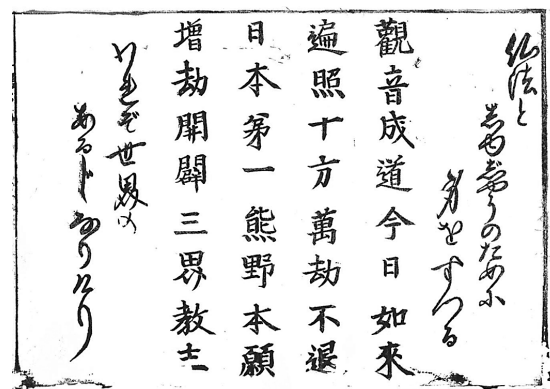 仏法と
志由じやうのために
身をすつる
觀音成道今日如來
遍照十方萬劫不退
日本第一熊野本願
增劫開闢三界教主
けれど世界の
あるじなりけり